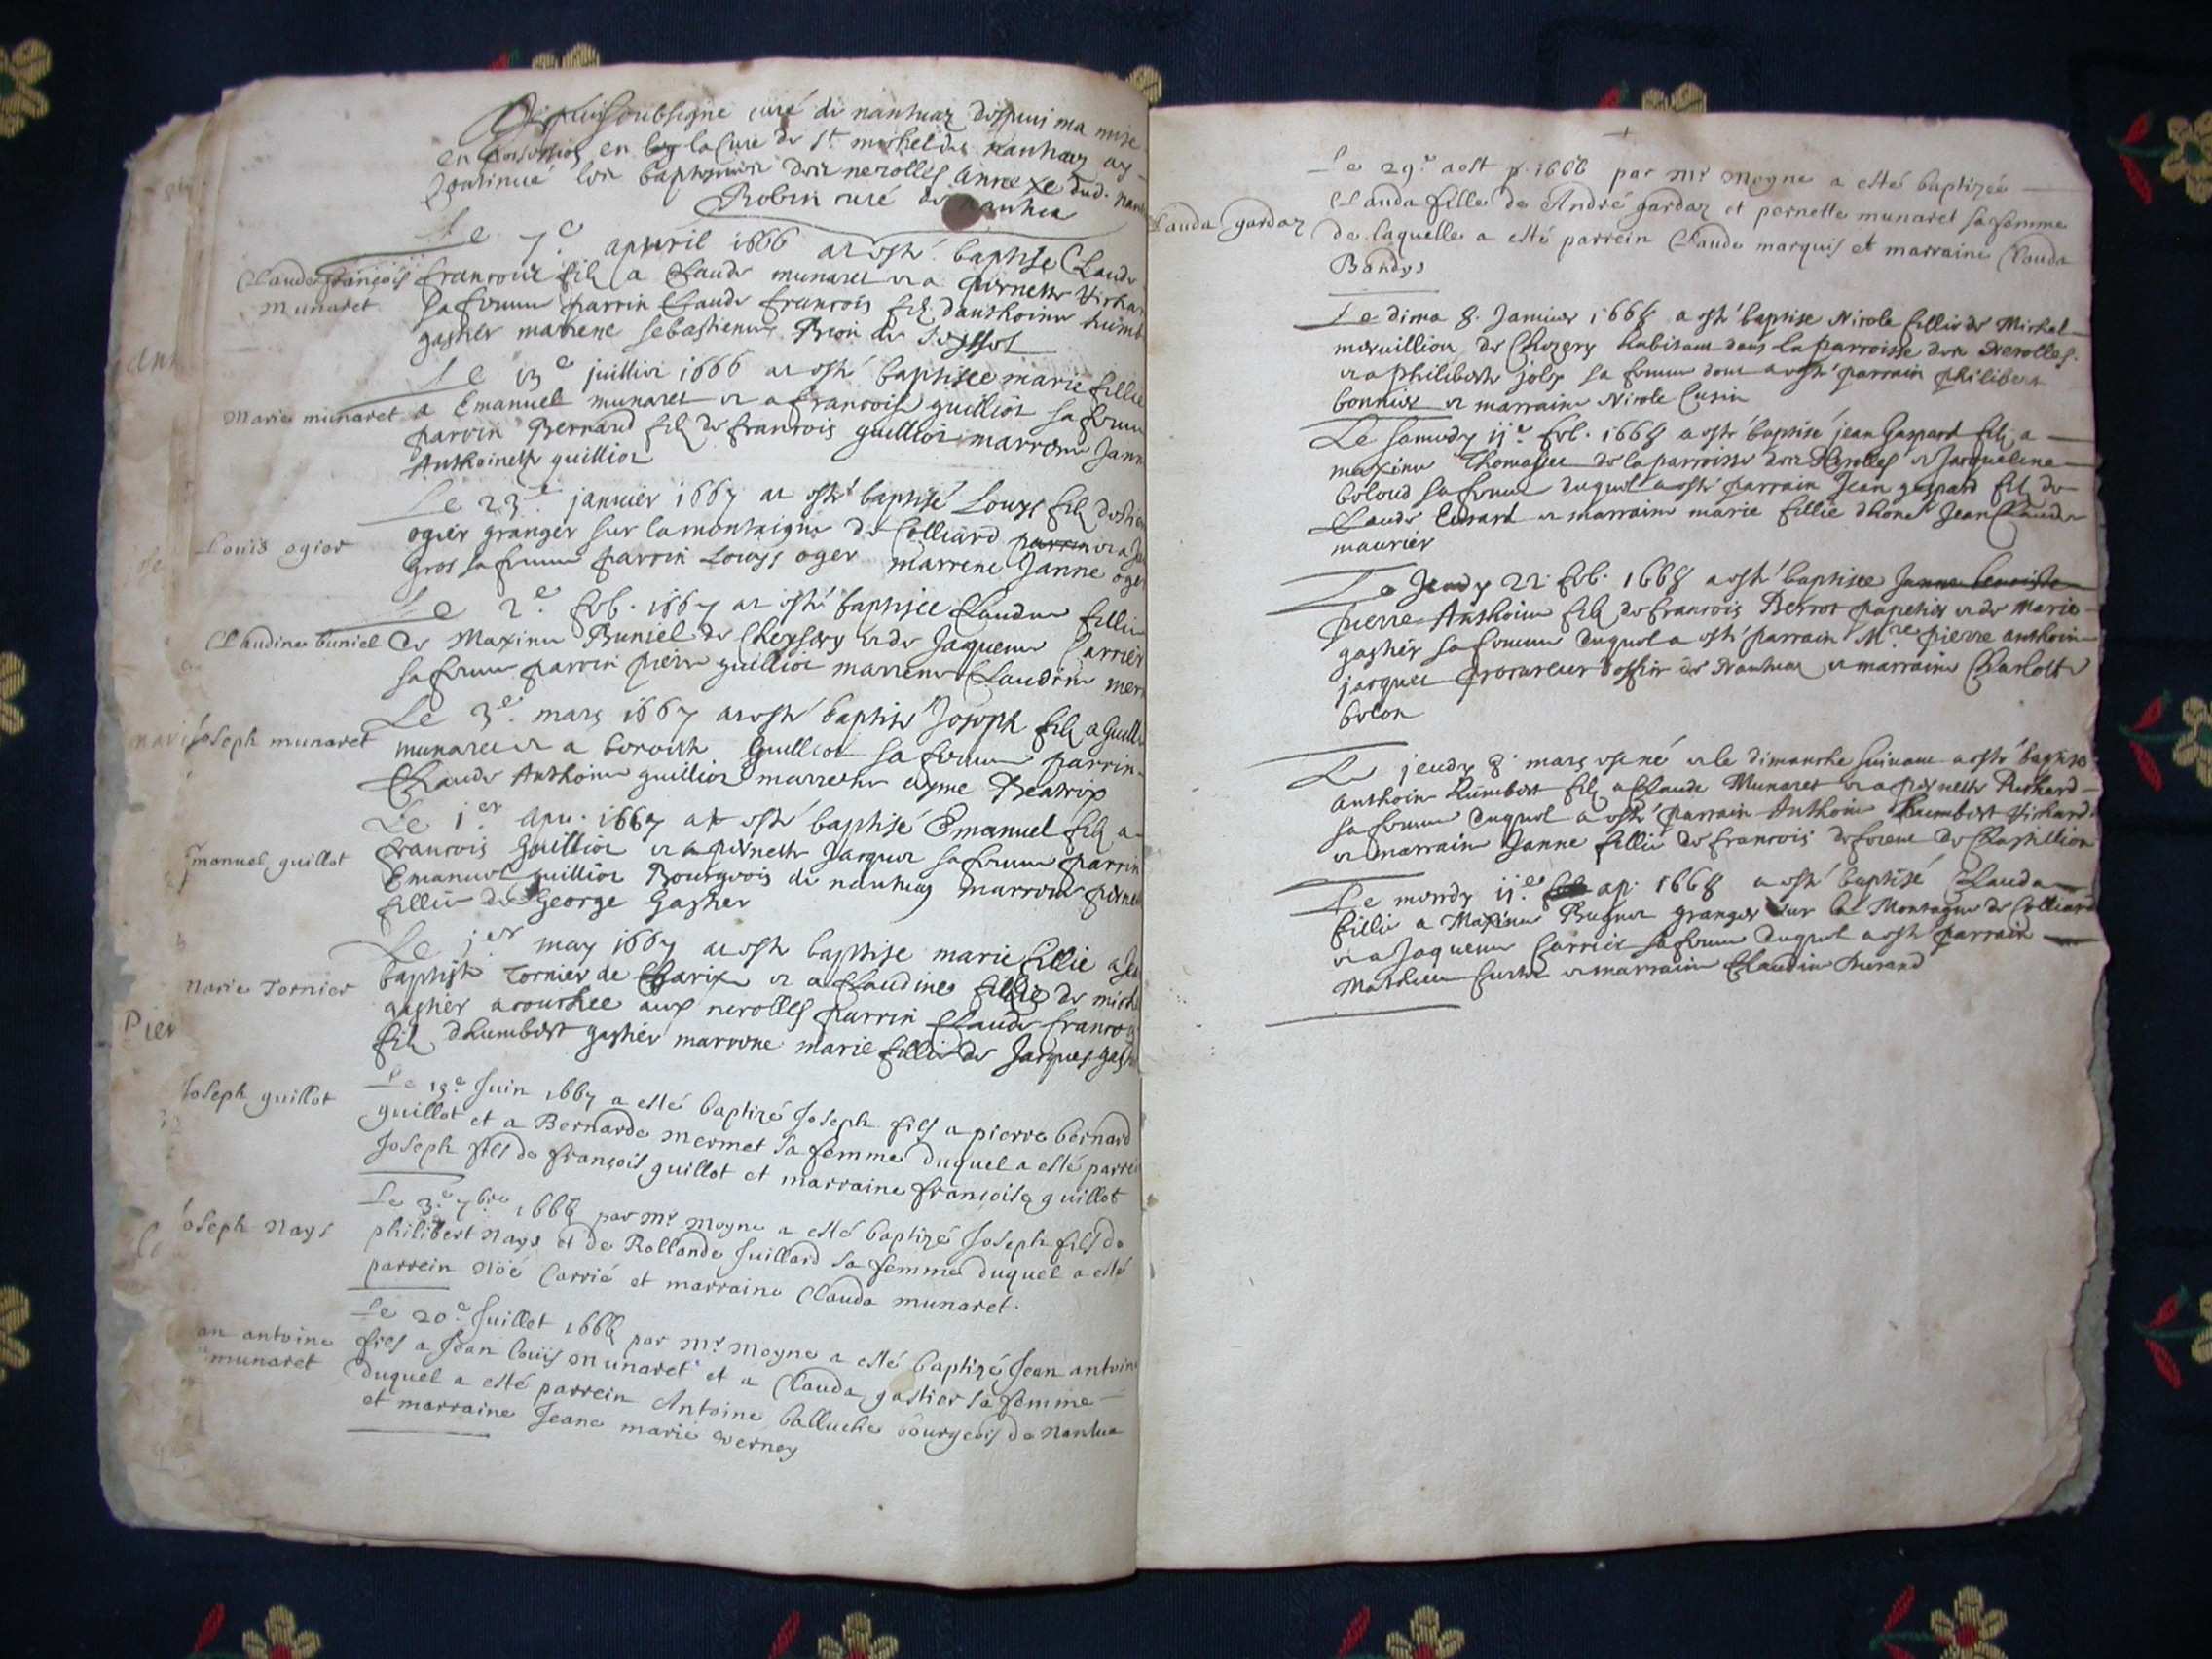 soubsigne curé de nantuaz despuis ma mise
en possession en la cure de St michel de nantuaz ay
continué les baptesmes des nerolles annexe dud.
Robin curé de nantua
Le 7e apuril 1666 a esté baptisé Claude
Claude françois
munaret
francois filz a Claude munaret et a pernette
sa femme parrin Claude francois filz danthoine humb
gashier marrene sebastienne
Le 13e juillier 1666 a esté baptisee marie fillie
Marie munaret
a Emanuel munaret et a francoise guillior sa femme
parrin Bernard filz de francois guillior marrene Jann
Anthoinette guillior
Le 23e januier 1667 a esté baptisé Louys filz
Louis ogier
ogier granger sur la montaigne de Colliard parrin et a
gros sa femme parrin Louys oger marrene Janne oger
Le 2e feb. 1667 a esté baptisee Claudine fillie
Claudine buniel
de Maxime Buniel de Cheysery et de Jaqueme Carrier
sa femme parrin pierre guillior marrene Claudine mer
Le 3e mars 1667 a esté baptisé Joseph filz a Guill
Joseph munaret
munaret et a benoiste Guillior sa femme parrin
Claude Anthoine guillior marrene ayme Beatrix
Le 1er apu. 1667 a esté baptisé Emanuel filz a
Emanuel guillot
francois Guillior et a pernette Jacquier sa femme parrin
Emanuel guillior Bourgeois de nantuaz marrene perne
fillie de George Gashier
Le jer may 1667 a esté baptisé marie fillie a Je
Marie Tornier
baptiste Tornier de Charix et a Claudine fillie de mich
gashier acouchee aux nerolles parrin Claude franco
filz dhumbert gashier marrene marie fillie de Jacques gash
Le 19e Juin 1667 a esté baptizé Joseph fils a pierre bernard
Joseph guillot
guillot et a Bernarde mermet sa femme duquel a esté parrei
Joseph fils de françois guillot et marraine françoise guillot
Le 3e 7bre 1668 par Mr moyne a esté baptizé Joseph fils de
Joseph Nays
philibert Nays et de Rollande Juillard sa femme duquel a esté
parrein Nöé Carrié et marraine Clauda munaret.
Le 20e Juillet 1668 par Mr Moyne a esté baptizé Jean antoine
an antoine
munaret
fils a Jean louis munaret et a Clauda gastier sa femme
duquel a esté parrein Antoine balluche bourgeois de Nantua
et marraine Jeane marie verney
Le 29e aost 1668 par Mr Moyne a esté baptizée
Clauda gardaz
Clauda fille de André gardaz et pernette munaret sa femme
de laquelle a esté parrein Claude marquis et marraine Clauda
Bandys
Le dima 8. Januier 1668 a esté baptisé Nicole fillie de Michel
meruillion de Chezery habitant dans la parroisse des Nerolles
et a philiberte joly sa femme dont a esté parrain philibert
bonnier et marraine Nicole Cusin
Le samedy 11e feb. 1668 a esté baptisé jean Gaspard filz a
maxime Thomasset de la parroisse des Nerolles et Jacqueline
boloud sa femme duquel a esté parrain Jean gaspard filz de
Claude Eurard et marraine marie fillie dhonet Jean Claude
maurier
Le Jeudy 22 feb. 1668 a esté baptisee Janne benoiste
pierre Anthoine filz de francois Perrot papetier et de Marie
gashier sa femme duquel a esté parrain Mre pierre anthoine
jacquet procureur doffice de Nantuaz et marraine Charlotte
bolon
Le jeudy 8. mars est né et le dimanche suiuant a esté baptisé
Anthoine Humbert filz a Claude Munaret et a pernette Richard
sa femme duquel a esté parrain Anthoine humbert Richard
et marraine Janne fillie de francois de Chastillion
Le mecdy 11e feb ap. 1668 a esté baptisé Clauda
fillie a Maxime Bugner granger sur la Montagne de Colliard
et a Jaquemme Carrier sa femme duquel a esté parrain
Mathieu et marraine Claudine Durand